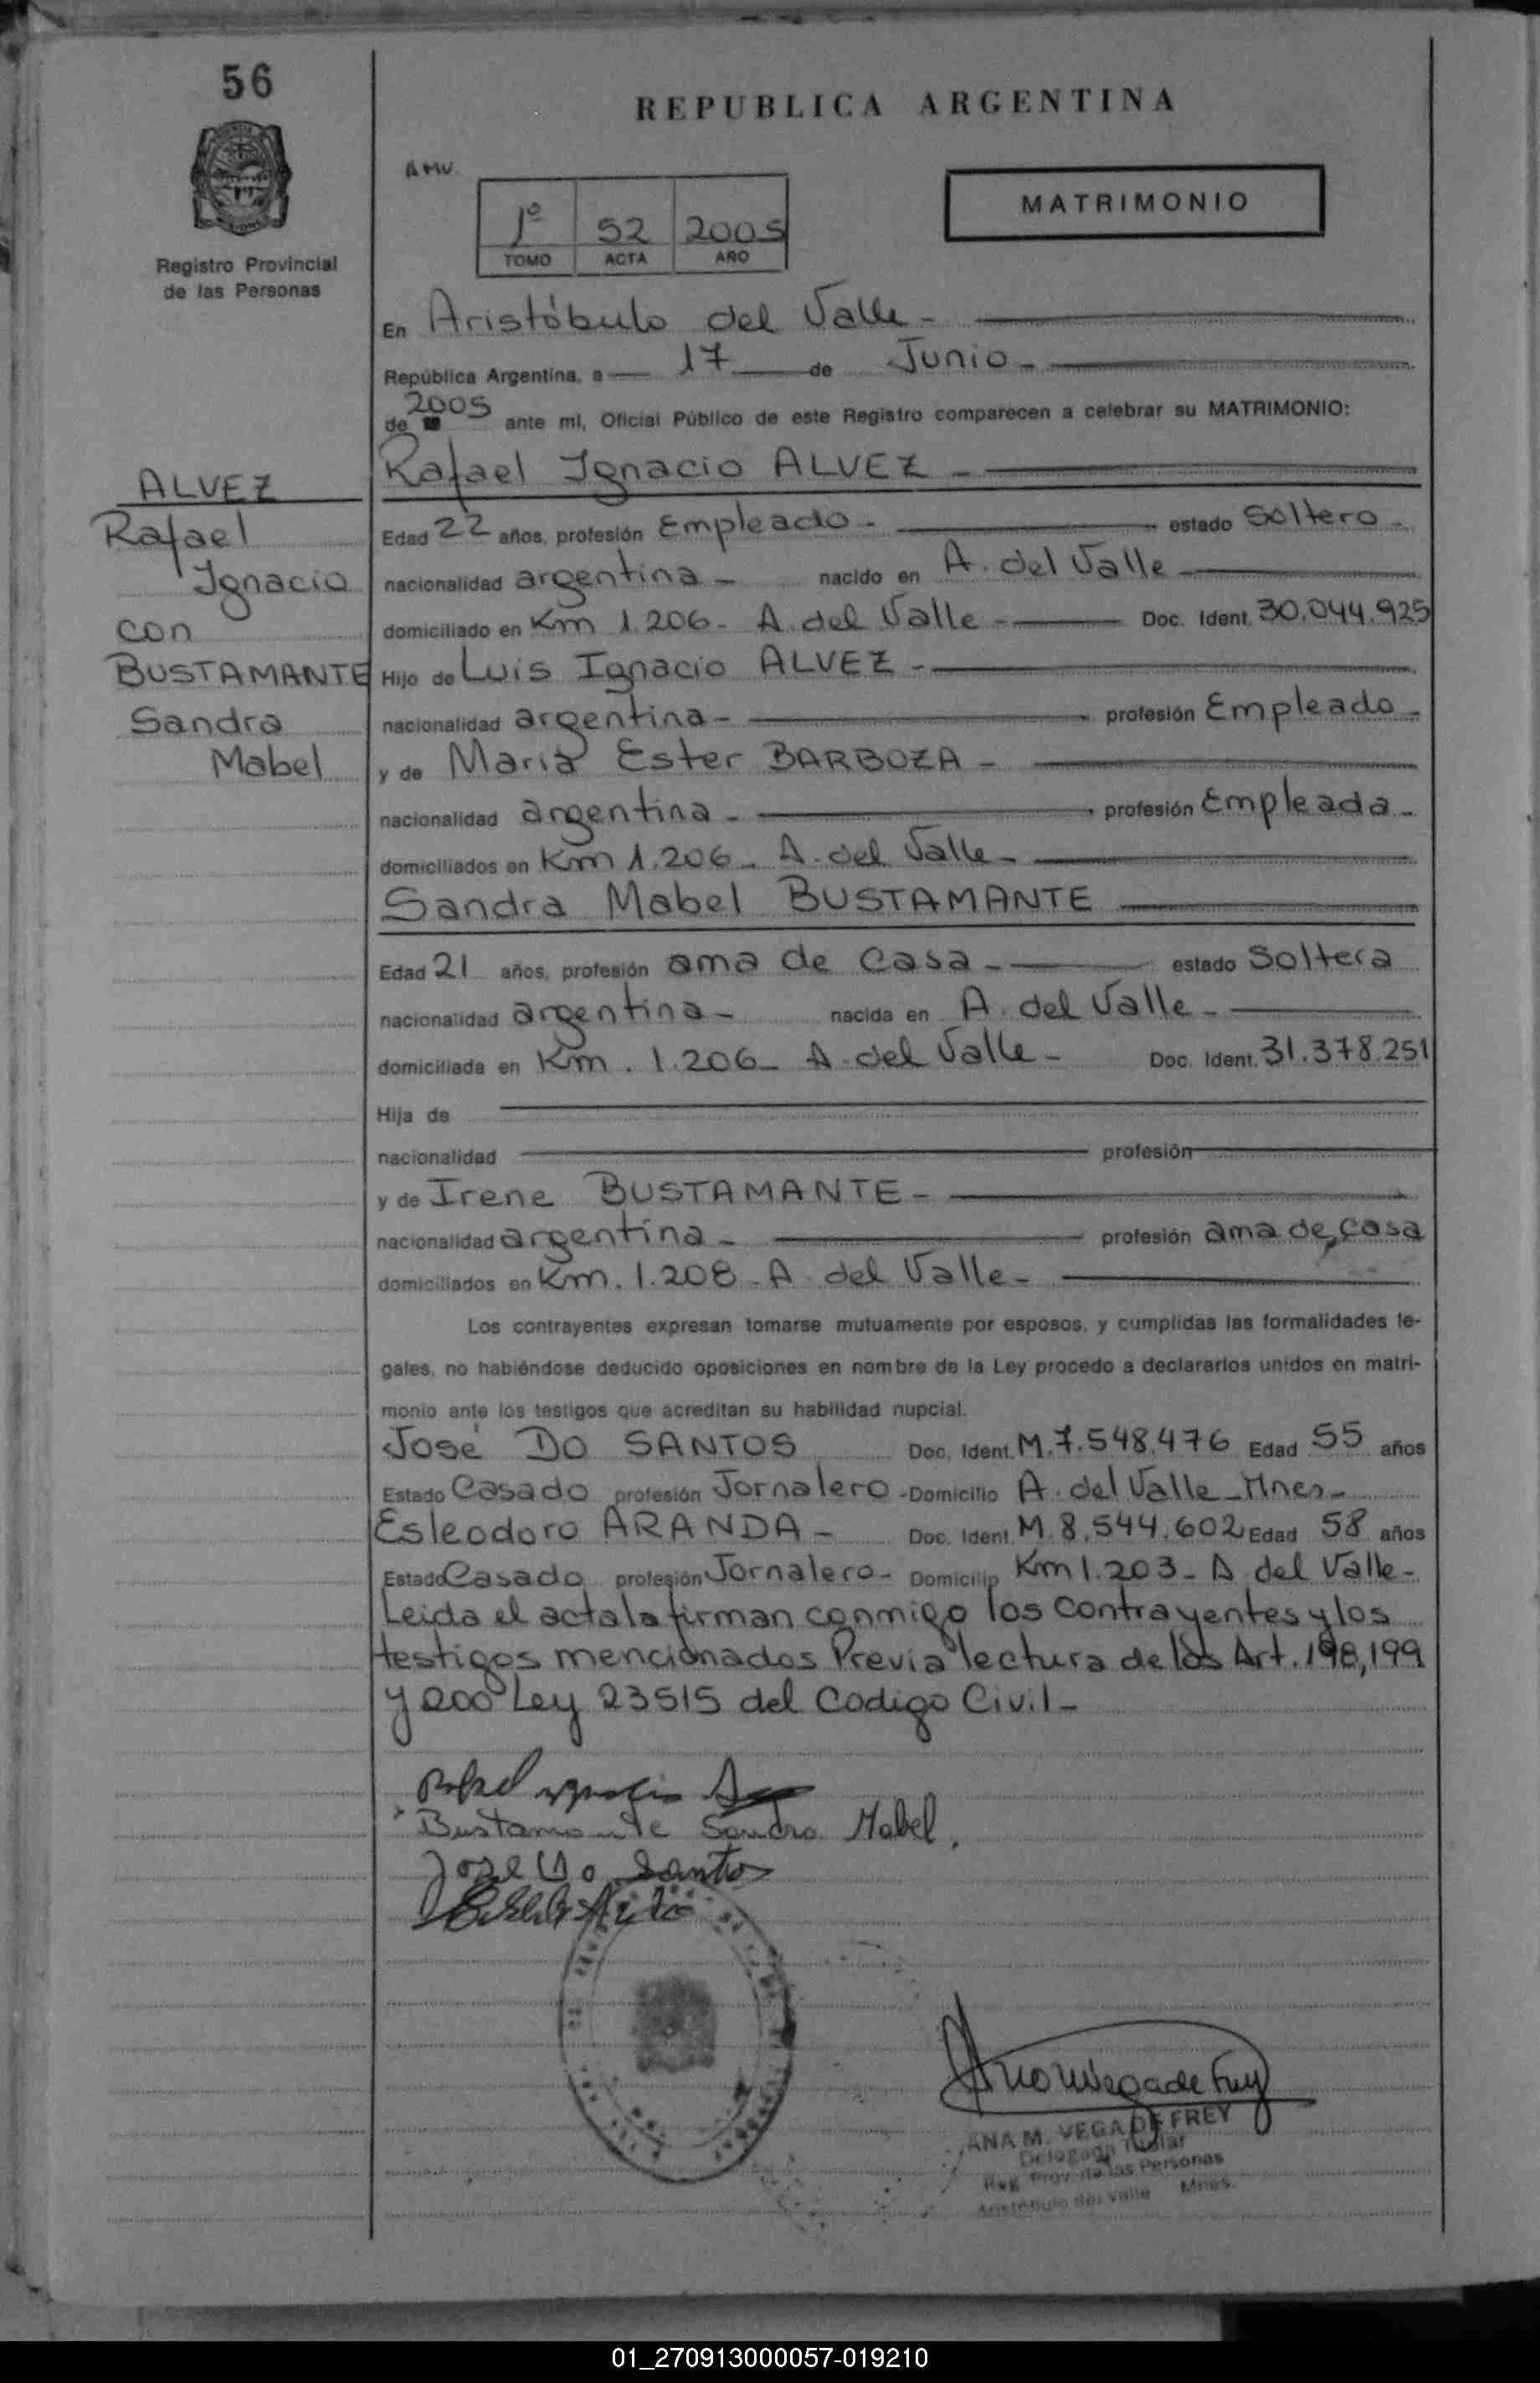 56
REPUBLICA ARGENTINA
AMV.
1º 52 2005
TOMO ACTA AÑO
MATRIMONIO
Registro Provincial
de las Personas
En Aristóbulo del Valle -
República Argentina, a 17 de Junio -
de 2005 ante mi, Oficial Público de este Registro comparecen a celebrar su MATRIMONIO:
Rafael Ignacio ALVEZ -
ALVEZ
Rafael
Ignacio
con
BUSTAMANTE
Sandra
Mabel
Edad 22 años, profesión Empleado - estado Soltero -
nacionalidad argentina - nacido en A. del Valle
domiciliado en Km 1.206 - A. del Valle - Doc. Ident. 30.044.925
Hijo de Luis Ignacio ALVEZ -
nacionalidad argentina - profesión Empleado -
y de Maria Ester BARBOZA -
nacionalidad argentina - profesión Empleada -
domiciliados en Km 1.206 - A. del Valle -
Sandra Mabel BUSTAMANTE
Edad 21 años, profesión ama de casa - estado Soltera
nacionalidad argentina - nacida en A. del Valle -
domiciliada en Km. 1.206 - A. del Valle - Doc. Ident. 31.378.251
Hija de
nacionalidad profesión
y de Irene BUSTAMANTE -
nacionalidad argentina - profesión ama de casa
domiciliados en Km. 1.208 - A del Valle -
Los contrayentes expresan tomarse mutuamente por esposos, y cumplidas las formalidades le-
gales, no habiéndose deducido oposiciones en nombre de la Ley procedo a declararlos unidos en matri-
monio ante los testigos que acreditan su habilidad nupcial.
José DO SANTOS Doc. Ident. M. 7.548.476 Edad 55 años
Estado Casado profesión Jornalero - Domicilio A. del Valle - Mnes -
Esleodoro ARANDA - Doc. Ident. M. 8.544.602 Edad 58 años
Estado Casado profesión Jornalero - Domicilio Km 1.203 - A del Valle -
Leida el acta la firman conmigo los contrayentes y los
testigos mencionados Previa lectura de los Art. 198, 199
y 200 Ley 23515 del Codigo Civil -
Bustamante Sandra Mabel.
Jose Do Santos
ANA M. VEGA DE FREY
Delegada Titular
Reg. Prov. de las Personas
Aristóbulo del Valle Mnes.
01_270913000057-019210